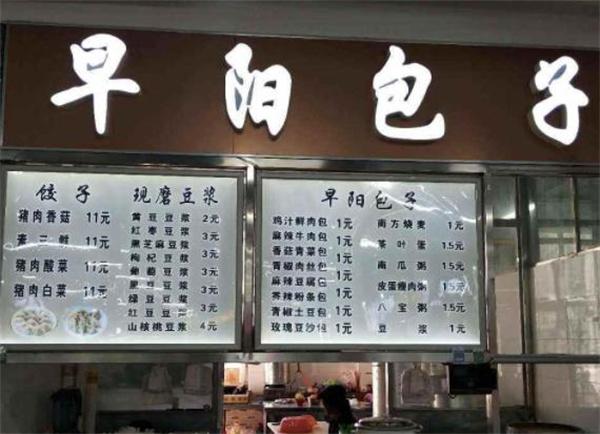 早阳包子
饺子
猪肉香菇 11元
素三鲜 11元
猪肉酸菜 11元
猪肉白菜 11元
现磨豆浆
黄豆豆浆 2元
红枣豆浆 3元
黑芝麻豆浆 3元
枸杞豆浆 3元
葡萄豆浆 3元
黑豆豆浆 3元
绿豆豆浆 3元
红豆豆浆 3元
山核桃豆浆 4元
早阳包子
鸡汁鲜肉包 1元
麻辣牛肉包 1元
香菇青菜包 1元
青椒肉丝包 1元
麻辣豆腐包 1元
香辣粉条包 1元
青椒土豆包 1元
玫瑰豆沙包 1元
南方烧麦 1元
茶叶蛋 1.5元
南瓜粥 1.5元
皮蛋瘦肉粥 1.5元
八宝粥 1.5元
豆浆 1元